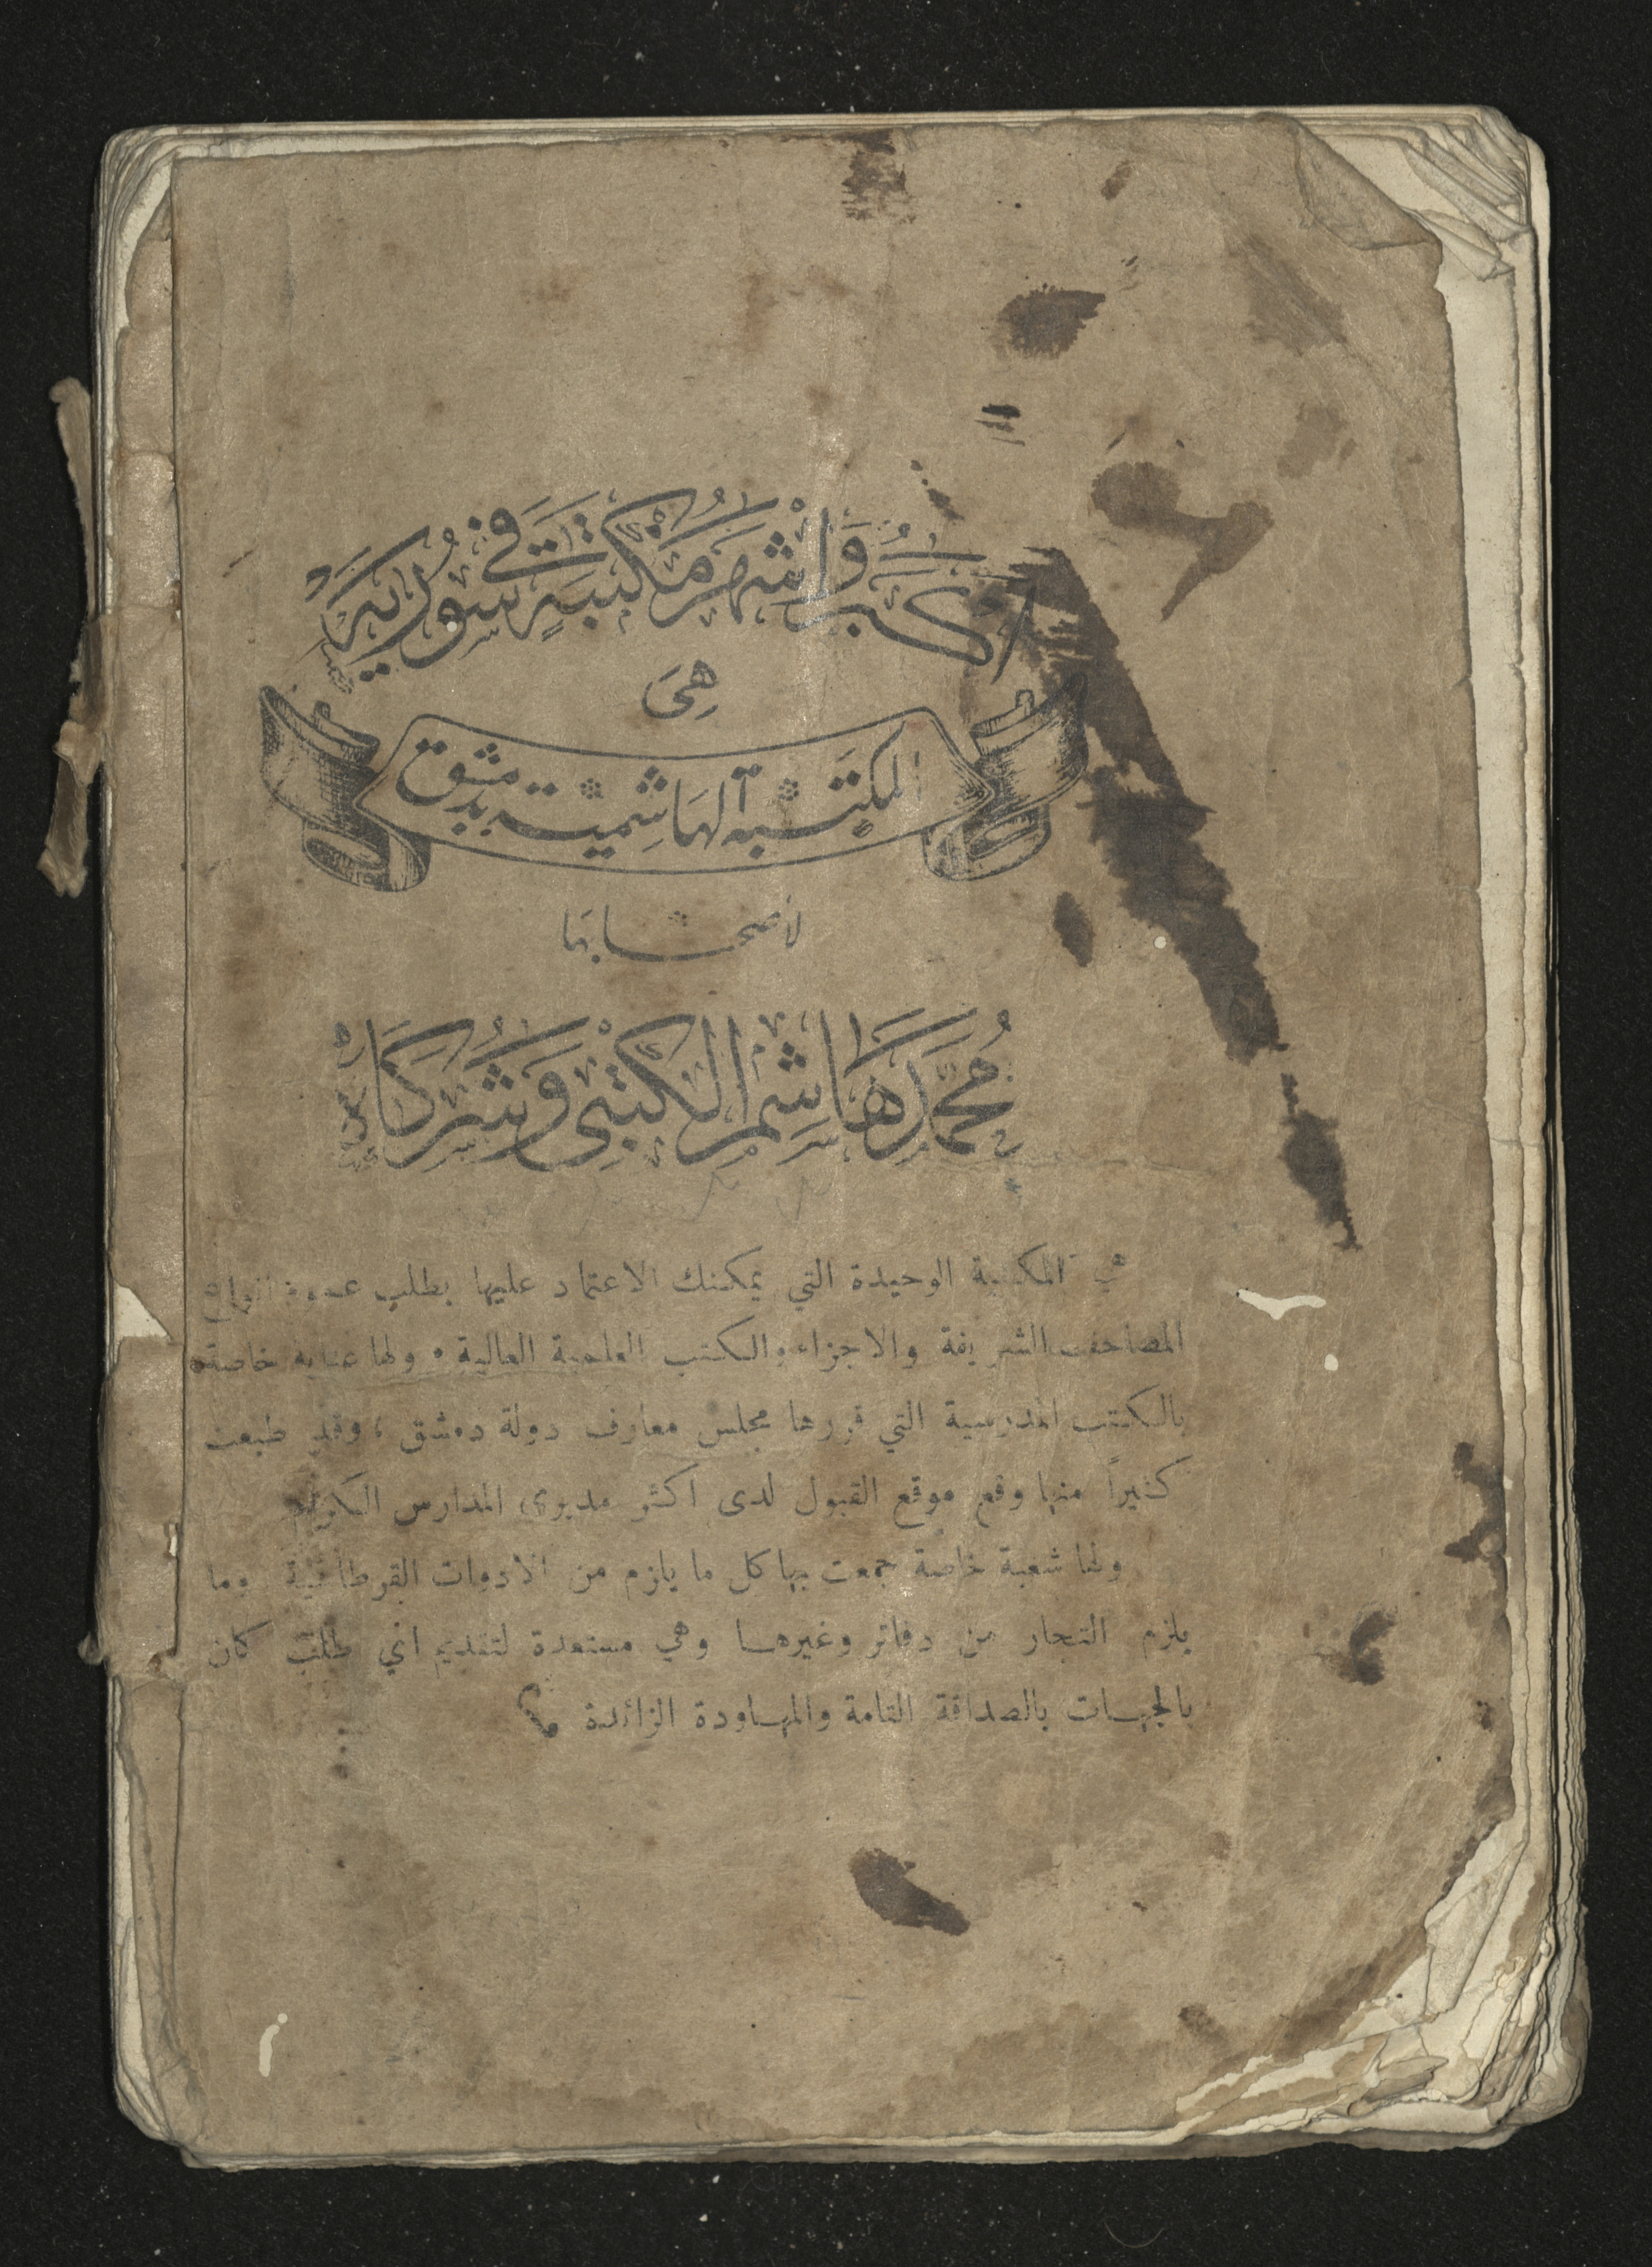 اكبر واشهر مكتبة في سورية
هي
المكتبة الهاشمية بدمشق
لأصحابها
محمد هاشم الكتبي وشركاه
هي المكتبة الوحيدة التي يمكنك الاعتماد عليها بطلب عموم انواع
المصاحف الشريفة والاجزاء والكتب العلمية العالية . ولها عناية خاصة
بالكتب المدرسية التي قررها مجلس معارف دولة دمشق ، وقد طبعت
كثيراً منها وقع موقع القبول لدى اكثر مديري المدارس الكرام
ولها شعبة خاصة جمعت بها كل ما يلزم من الادوات القرطاسية وما
يلزم التجار من دفاتر وغيرها وهي مستعدة لتقديم اي طلب كان
بالجهات بالصداقة التامة والمهاودة الزائدة